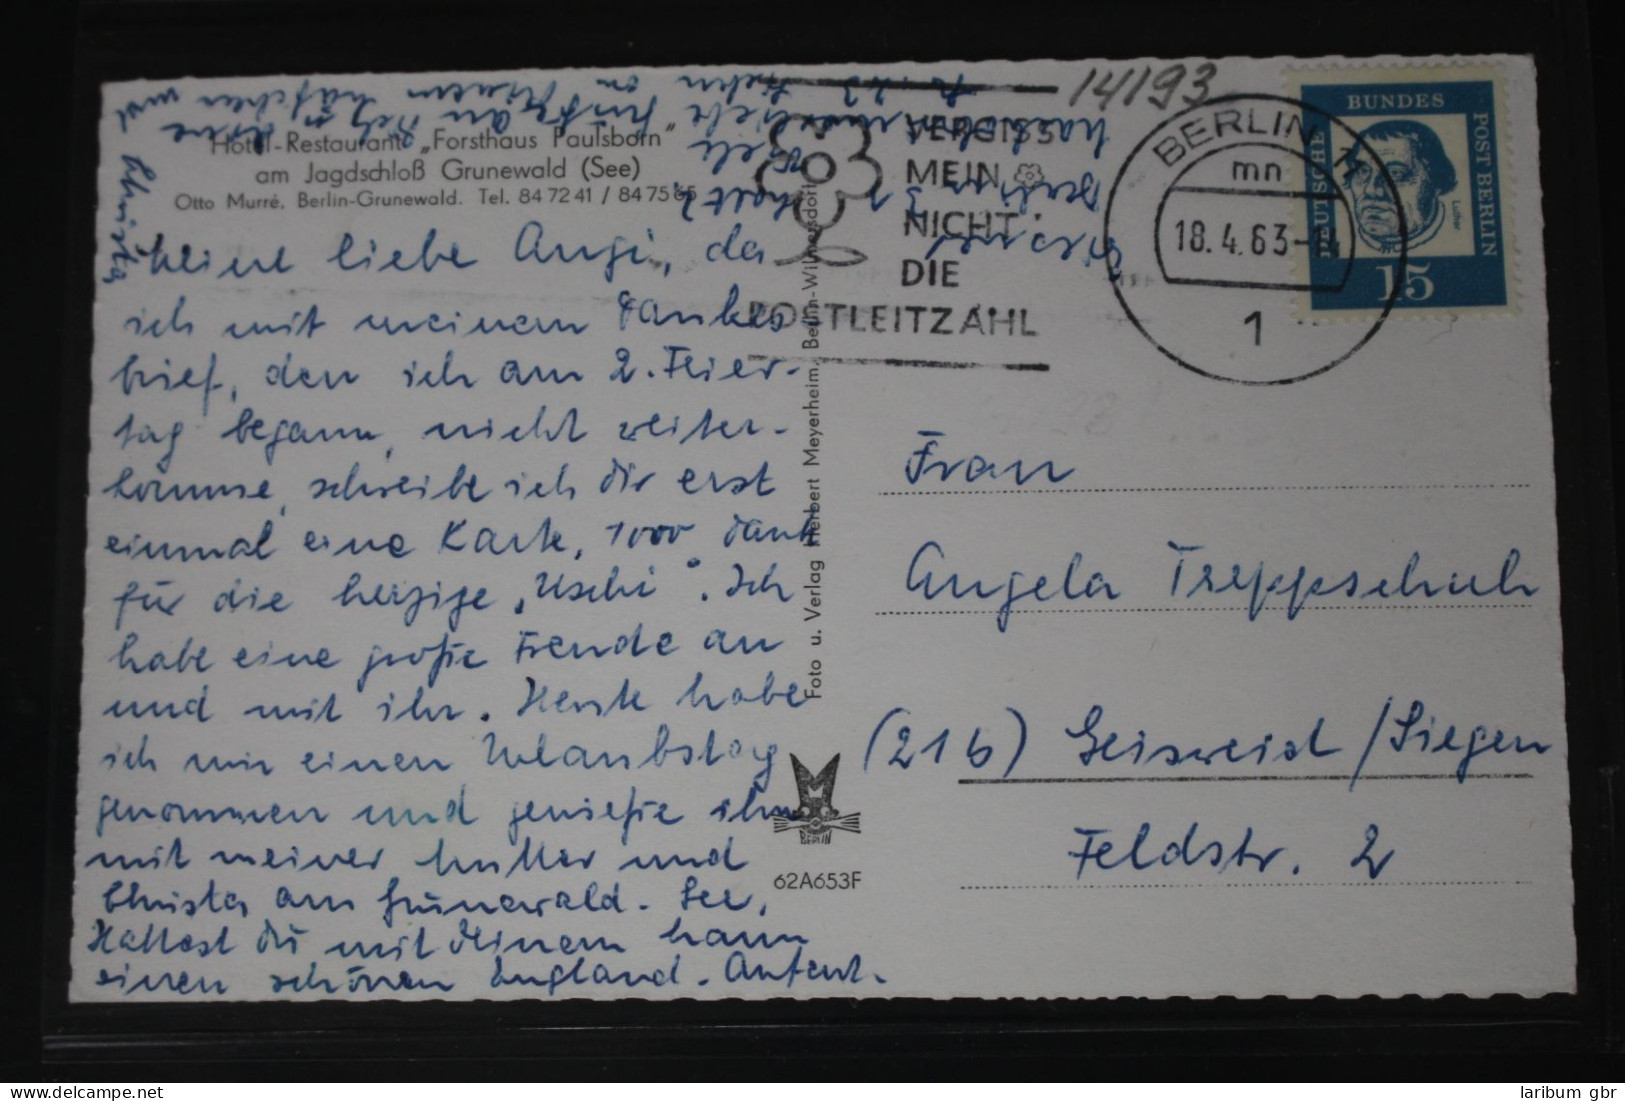 Hotel-Restaurant „Forsthaus Paulsborn"
am Jagdschloß Grunewald (See)
Otto Murré, Berlin-Grunewald. Tel. 84 72 41 / 84 75 65
Meine liebe Angi, da
ich mit meinem Dankes
brief, den ich am 2. Feier-
tag begann, nicht weiter-
komme, schreibe ich dir erst
einmal eine Karte, 1000 Dank
für die herzige „Uschi". Ich
habe eine große Freude an
und mit ihr. Heute habe
ich mir einen Urlaubstag
genommen und genieße ihn
mit meiner Mutter und
Christa am Grunewald-See.
Hattest du mit Deinem Mann
einen schönen England-Aufent-
halt?
Christa
Foto u. Verlag Herbert Meyerheim, Berlin-Wilmersdorf
BERLIN
62A653F
14193
VERGISS
MEIN
NICHT
DIE
POSTLEITZAHL
BERLIN 11
mn
18.4.63-14
1
DEUTSCHE
BUNDES
POST BERLIN
Luther
15
Frau
Angela Treppschuh
(21b) Geisweid/Siegen
Feldstr. 2
laribum gbr